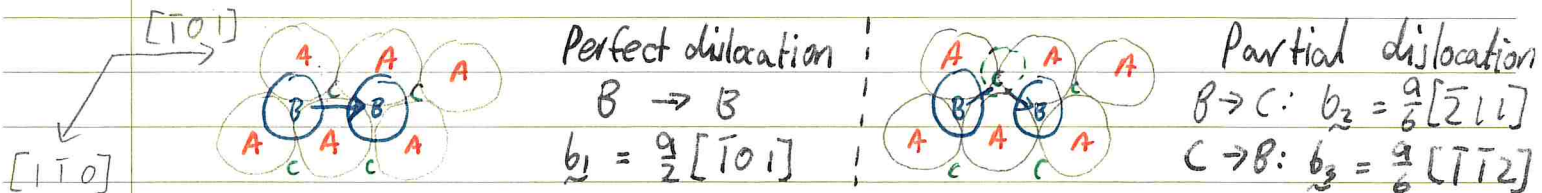 [1̄01]
[11̄0]
A A A
B B
C C
A A A
C C
Perfect dislocation
B → B
b₁ = a/2 [1̄01]
A A A
C C
B B
A A A
C C
Partial dislocation
B → C: b₂ = a/6 [2̄11]
C → B: b₃ = a/6 [1̄1̄2]